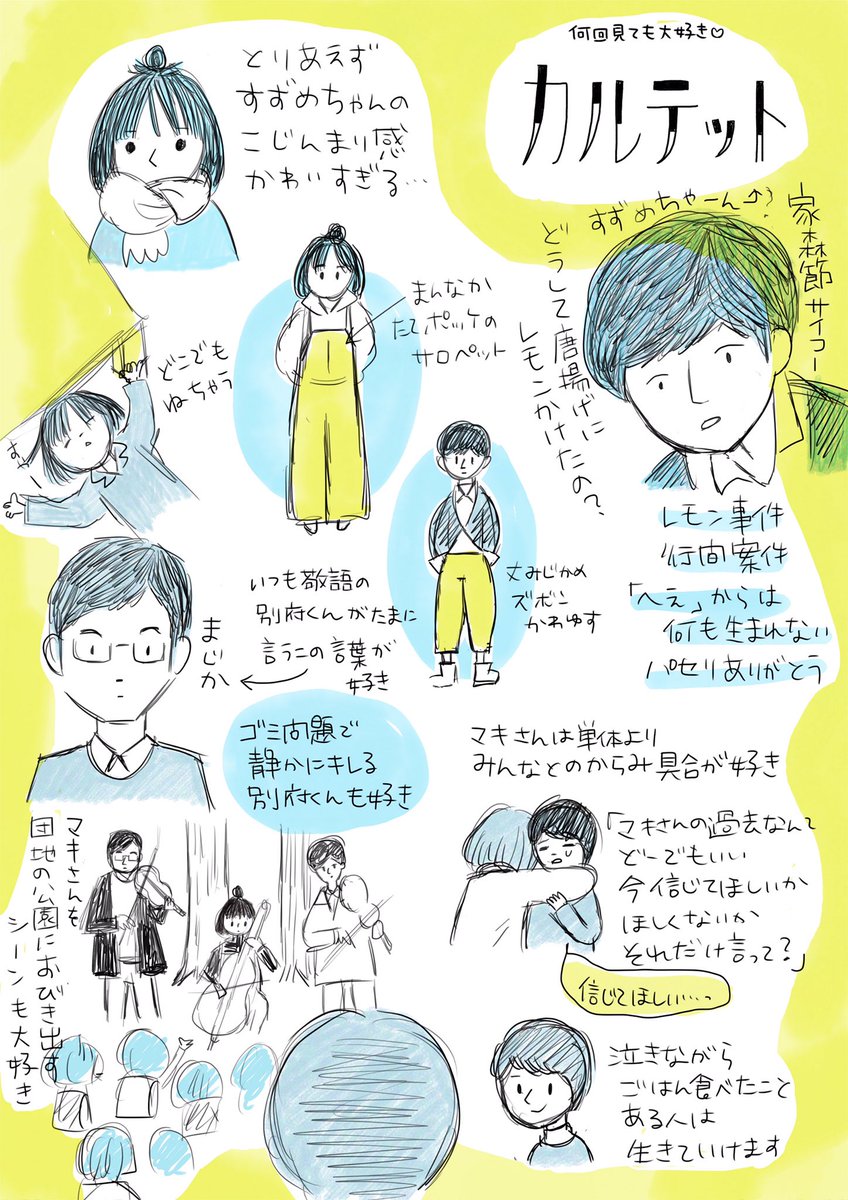 何回見ても大好き♡
カルテット
とりあえず
すずめちゃんの
こじんまり感
かわいすぎる…
すずめちゃーん↗?
家森節サイコー
どうして唐揚げに
レモンかけたの?
まんなか
たてポッケの
サロペット
どこでも
ねちゃう
レモン事件
行間案件
「へぇ」からは
何も生まれない
パセリありがとう
丈みじかめ
ズボン
かわゆす
いつも敬語の
別府くんがたまに
言うこの言葉が
好き
まじか
ゴミ問題で
静かにキレる
別府くんも好き
マキさんは単体より
みんなとのからみ具合が好き
「マキさんの過去なんて
どーでもいい
今信じてほしいか
ほしくないか
それだけ言って?」
信じてほしい…っ
マキさんを
団地の公園におびき出す
シーンも大好き
泣きながら
ごはん食べたこと
ある人は
生きていけます